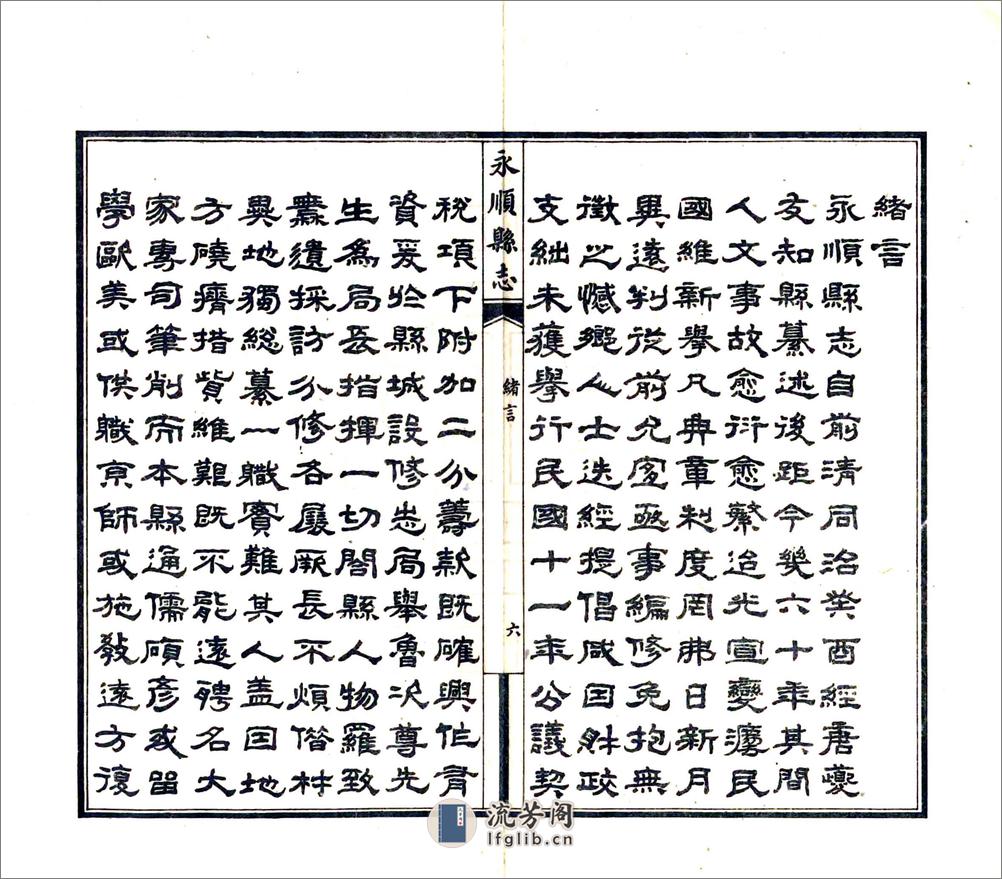 緒言
永順縣志自前清同治癸酉經唐夔
友知縣纂述後距今幾六十年其間
人文事故愈衍愈繁迨光宣變瀍民
國維新舉凡典章制度罔弗日新月
異遠判從前允宜亟事編修免抱無
徵之憾鄉人士迭經提倡咸因財政
支絀未獲舉行民國十一年公議契
永順縣志
緒言
六
稅項下附加二分籌款既確興作有
資爰於縣城設修志局舉魯次尊先
生為局長指揮一切閤縣人物羅致
無遺採訪分修各展厥長不煩借材
異地獨總纂一職實難其人蓋因地
方磽瘠措貲維艱既不能遠聘名大
家專司筆削而本縣通儒碩彥或留
學歐美或供職京師或施教遠方復
流芳阁
lfglib.cn